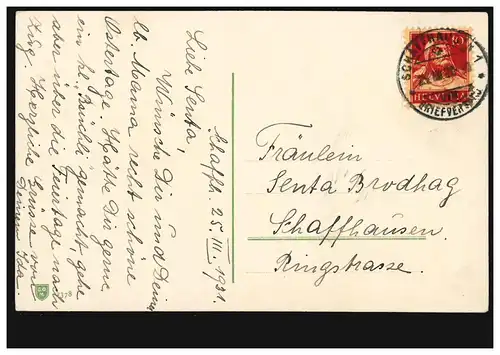 Schaffh. 25. III. 1931.
Liebe Senta,
Wünsche Dir und Deiner
lb. Mama recht schöne
Ostertage. Hätte Dir gerne
ein kl. „Büschli gemacht, gehe
aber über die Feiertage nach
Zug. Herzliche Grüsse von
Deiner Ida.
Fräulein
Senta Brodhag
Schaffhausen.
Ringstrasse.
HELVETIA
SCHAFFHAUSEN 1
BRIEFVERSAND